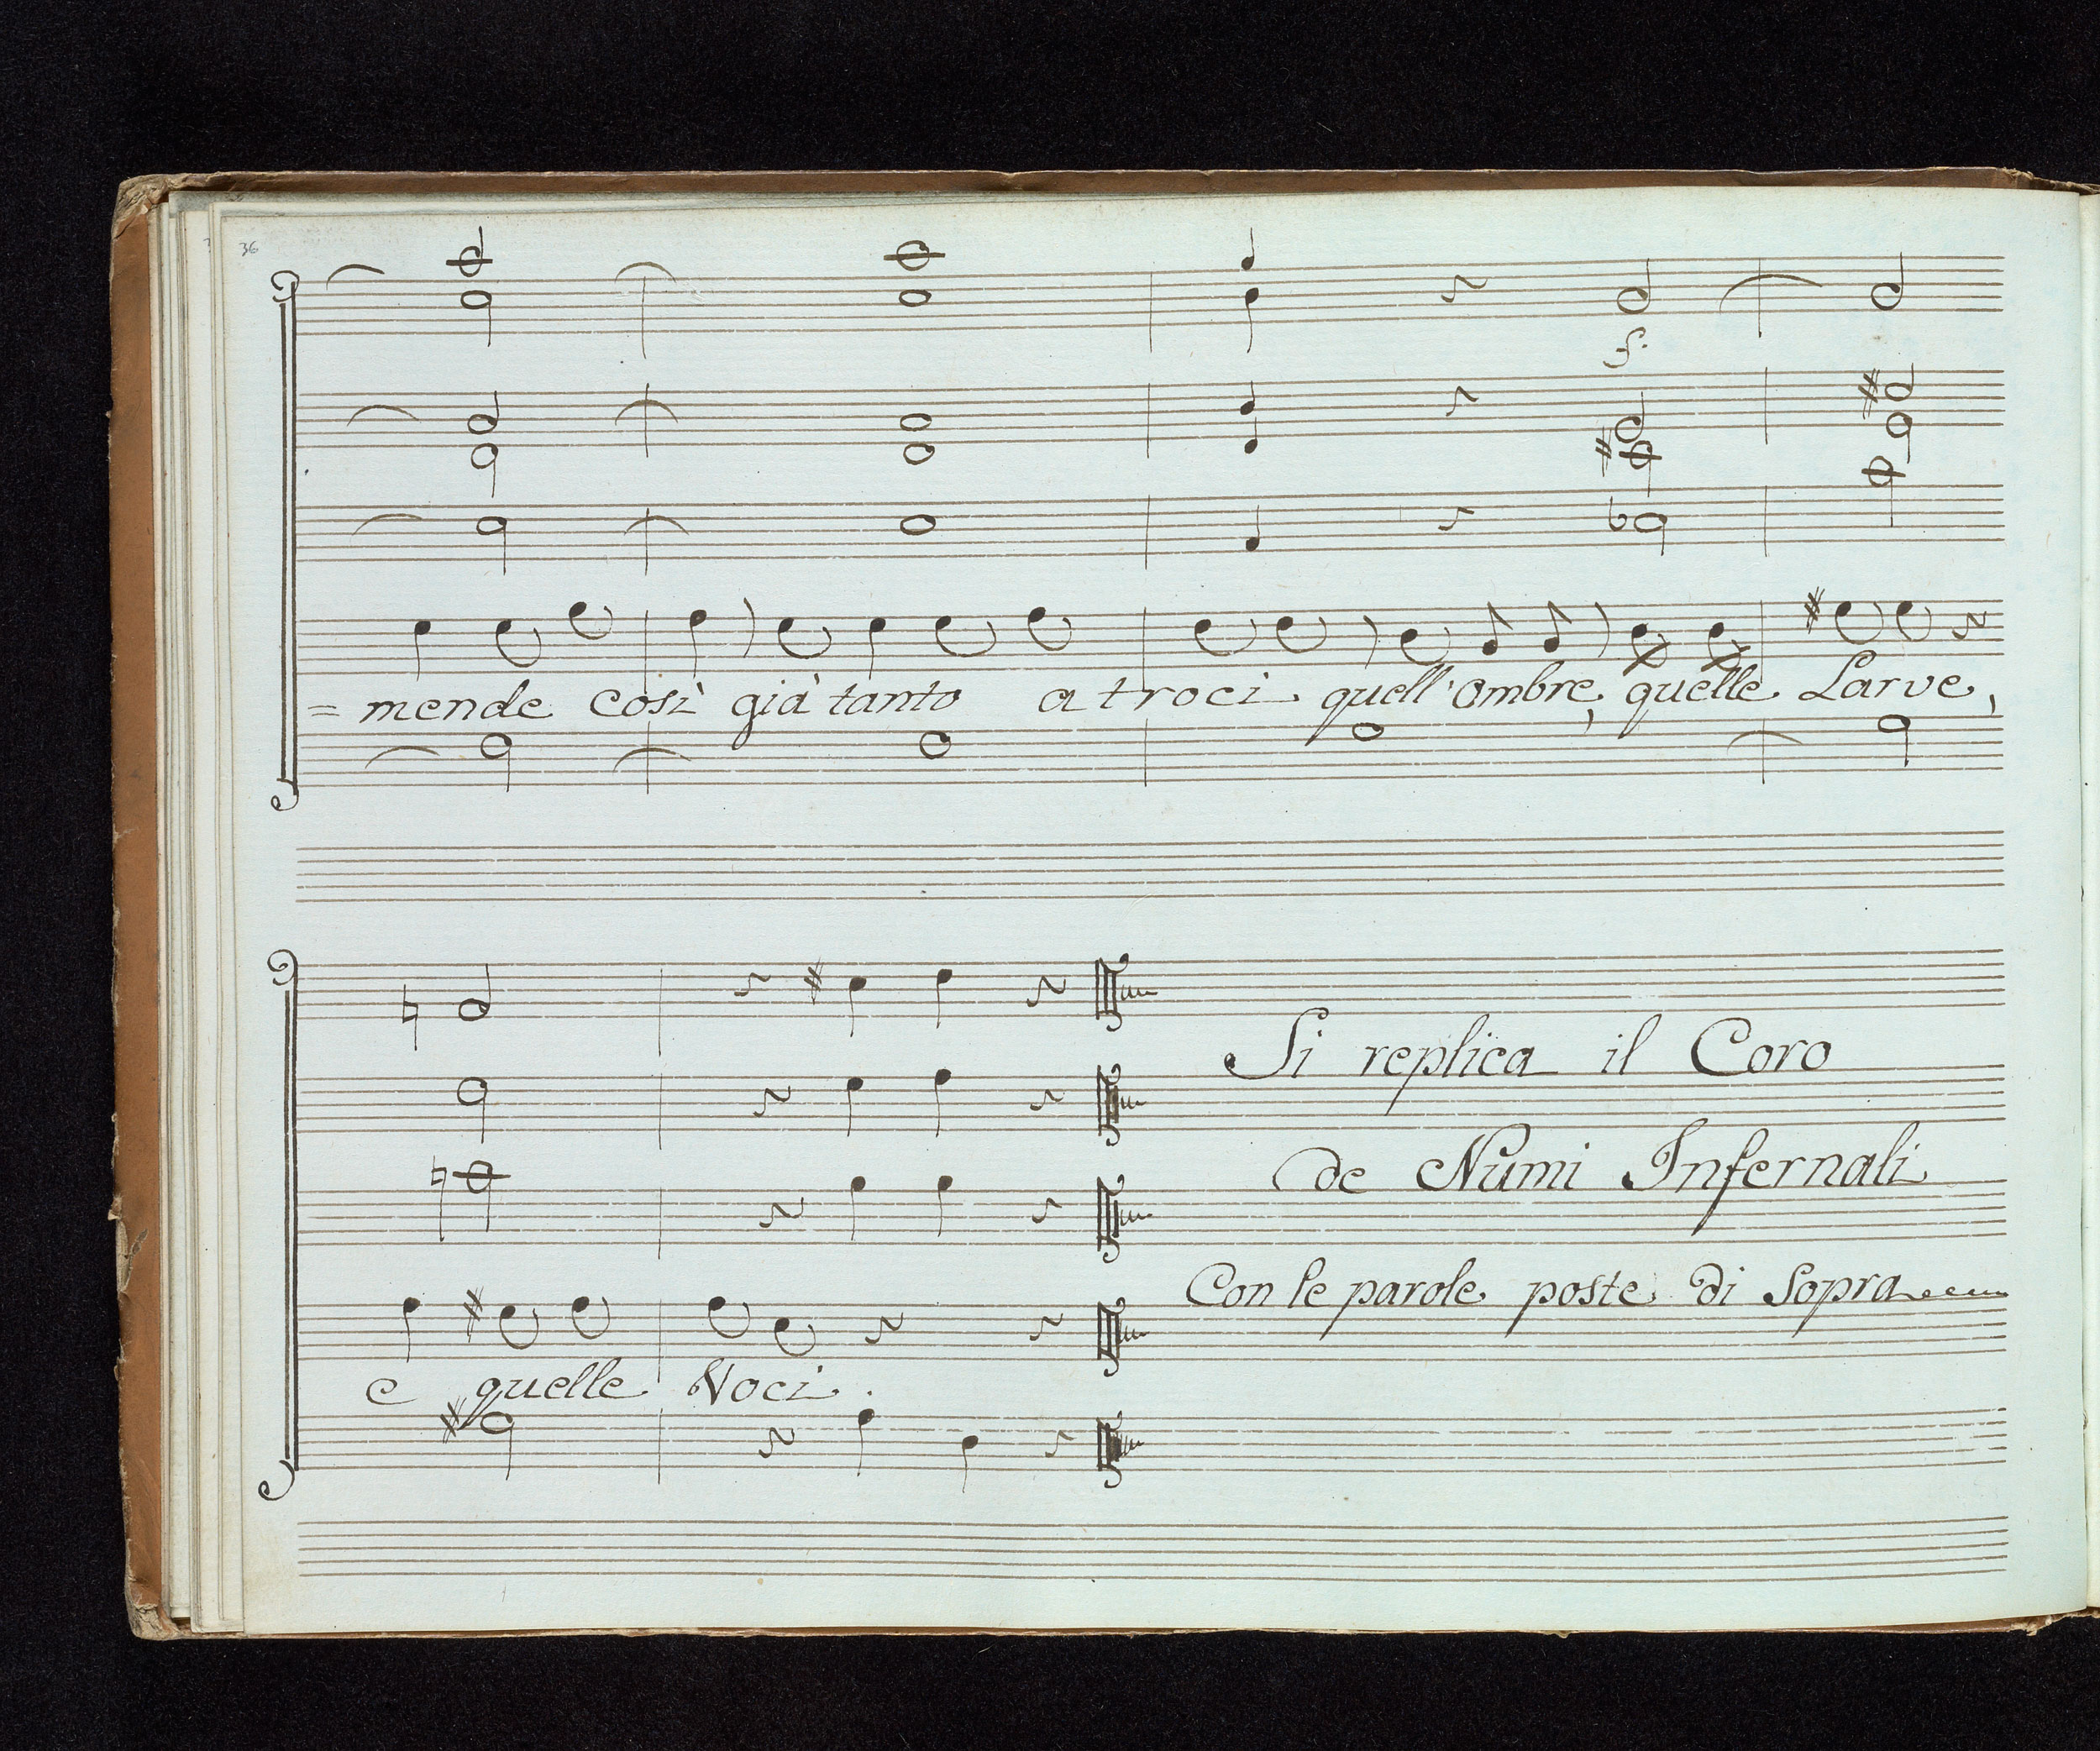 36
f.
= mende così già tanto atroci quell'ombre, quelle Larve,
Si replica il Coro
de Numi Infernali
Con le parole poste di Sopra
e quelle Voci.